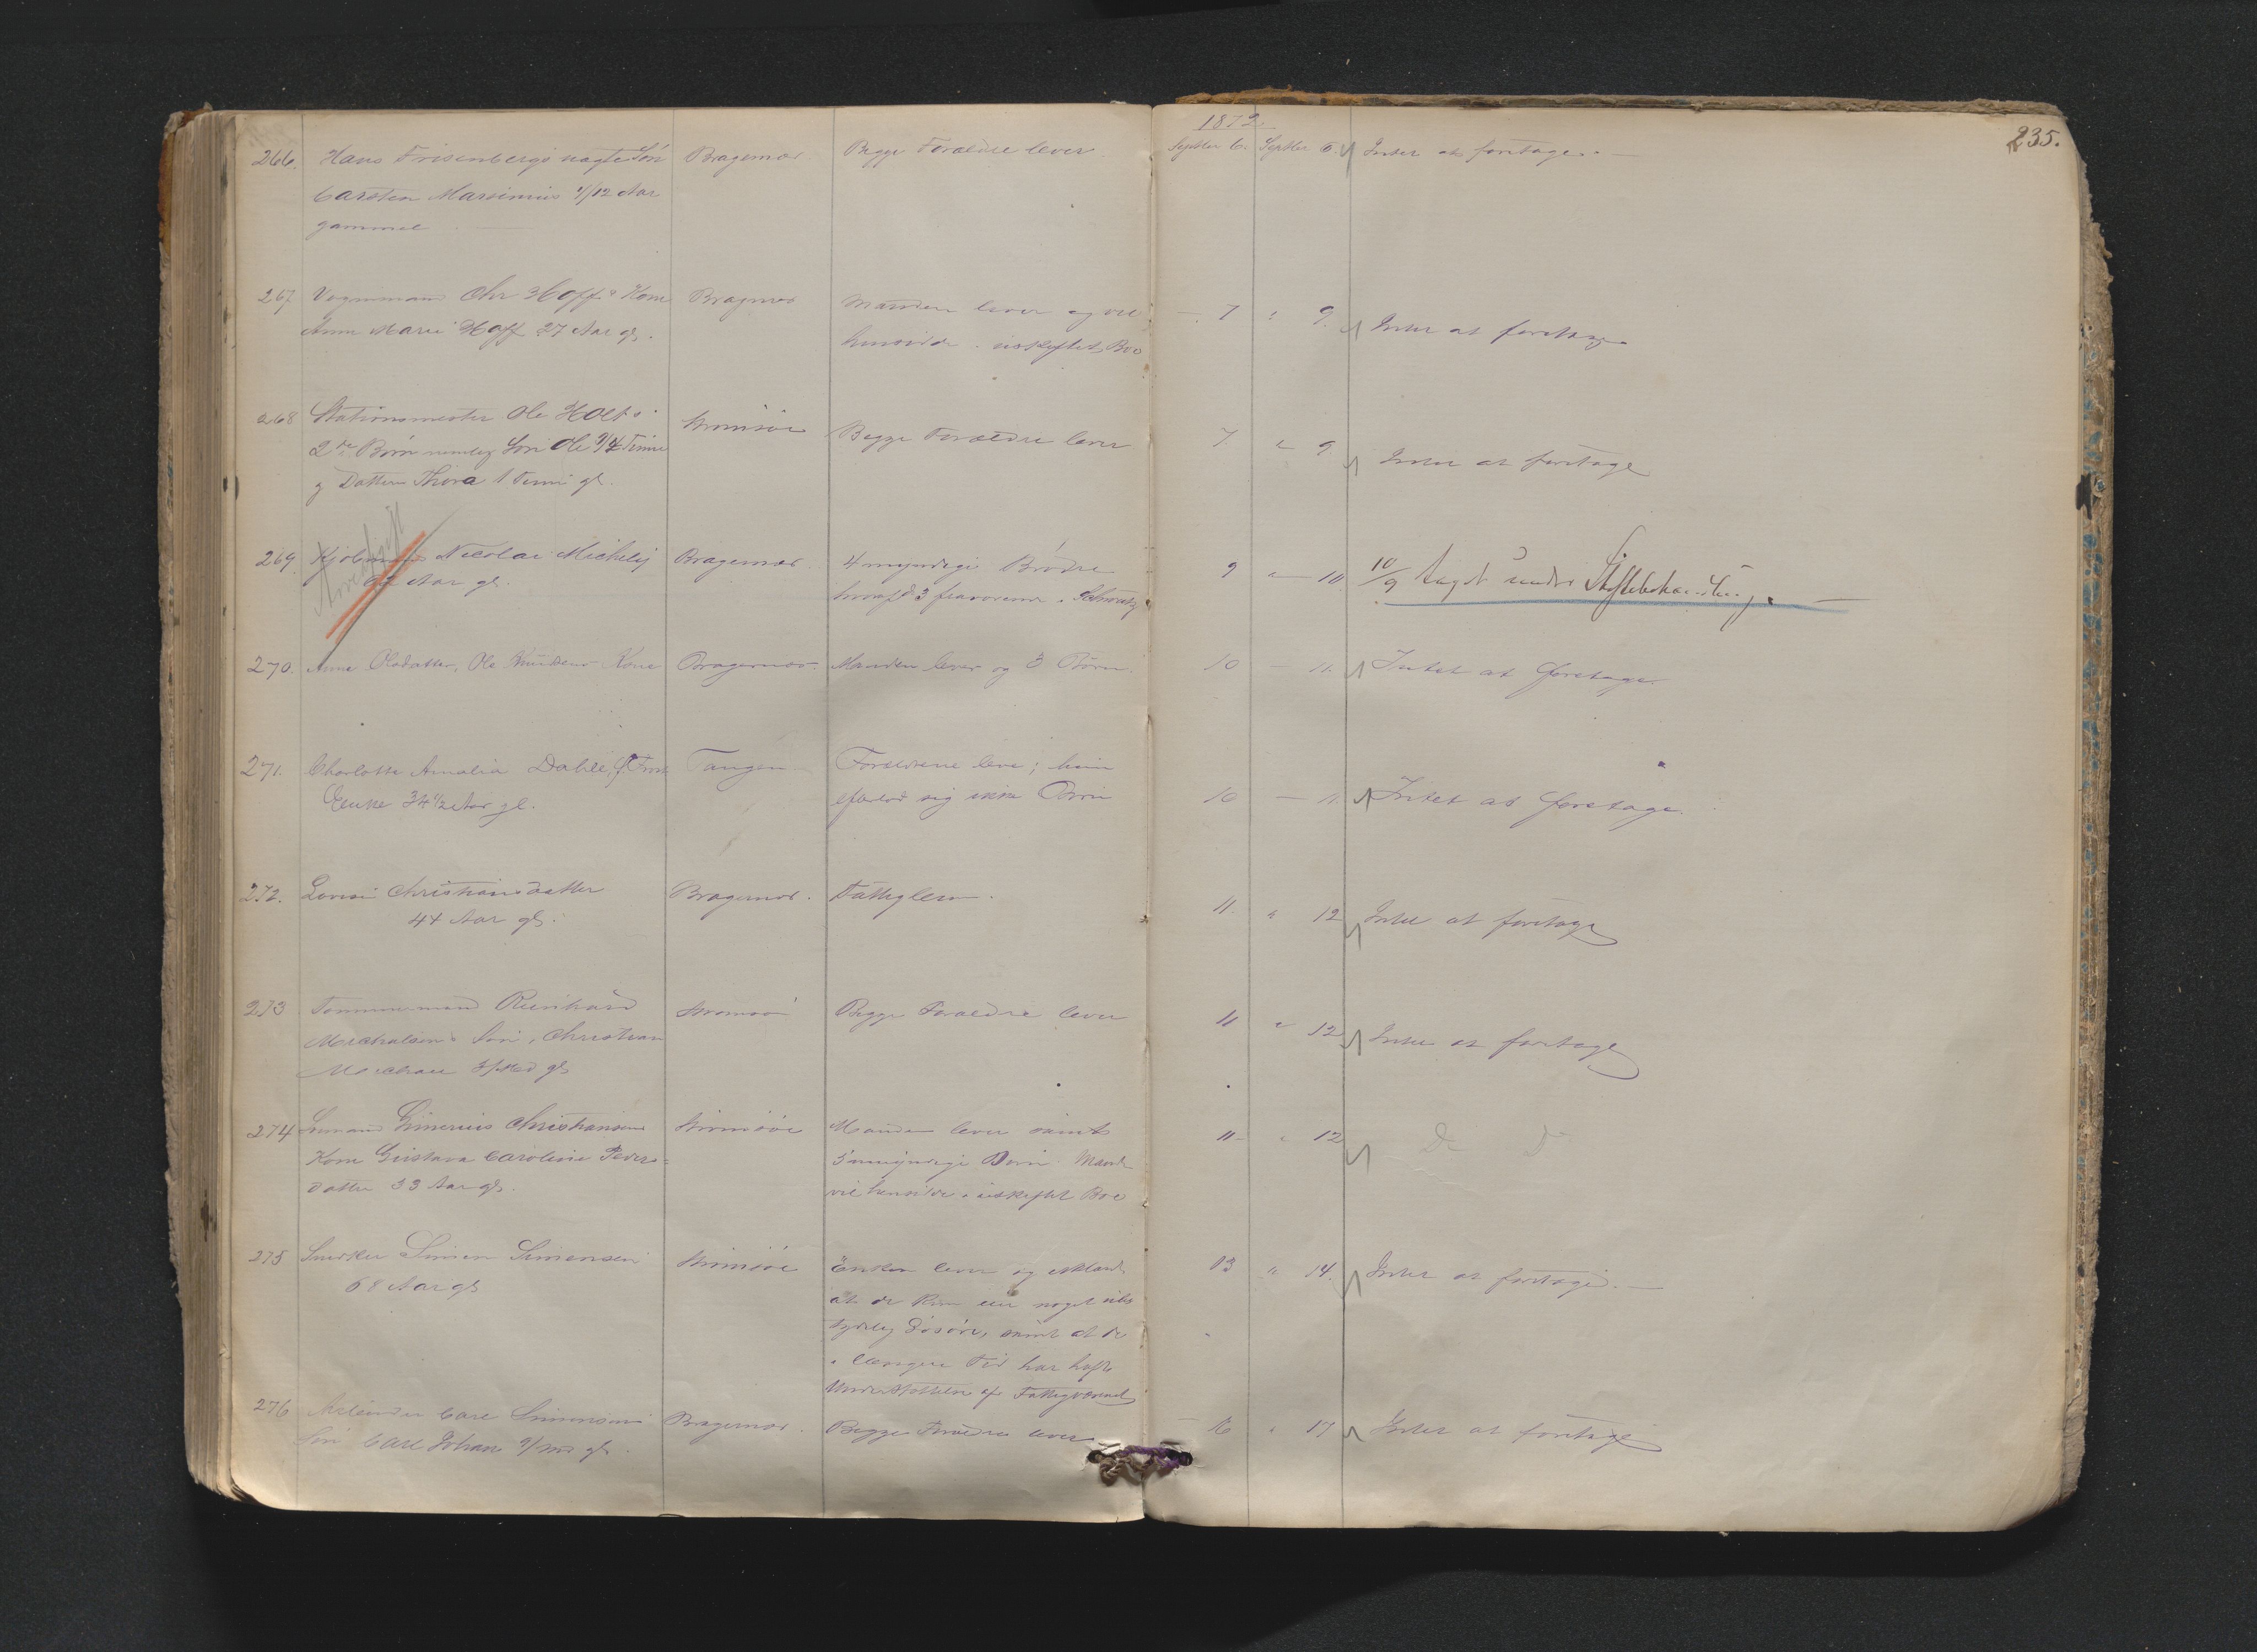 1872
235.
266. Hans Frisenbergs uægte Søn Bragernæs Begge Forældre lever Septbr 6. Septbr 6. Intet at foretage.
Carsten Marsinius 1/12 Aar
gammel
267 Vognmand Chr Hoffs Kone Bragernæs Manden lever og vil 7 " 9. Intet at foretage
Anne Marie Hoff 27 Aar gl. hensidde i uskiftet Boe
268 Stationsmester Ole Holts Strømsøe Begge Forældre lever 7. " 9 Intet at foretage
2de Børn nemlig Søn Ole 3/4 Time
og Datter Thora 1 Time gl.
Arveafgift
269. Nicolai Michelsen Bragernæs 4 myndige Brødre 9 " 10 10/9 taget under Skiftebehandling.
Aar gl. hvoraf 3 fraværende i
270. Anne Olsdatter, Ole Knudsens Kone Bragernæs Manden lever og 3 Børn. 10 — 11. Intet at foretage.
271. Charlotte Amalia Dahle, Tangen Forældrene leve; hun 10 — 11 Intet at foretage.
Enke 34 1/2 Aar gl. efterlod sig ikke Børn
272. Lovise Christiansdatter Bragernæs. Fattiglem. 11. " 12 Intet at foretage
44 Aar gl.
273 Tømmermand Reinhard Strømsø Begge Forældre lever 11 " 12 Intet at foretage
Michalsens Søn, Christian
gl
274 Christiansens Strømsøe Manden lever samt 11 - " 12 Do Do
Kone Gustava Caroline Peders=
datter 33 Aar gl. 5 umyndige Børn. Mand
vil hensidde i uskiftet Boe
275 Snedker Simen Simensen Strømsøe Enken lever og erklærer 13 " 14. Intet at foretage.
68 Aar gl at der kun er noget ube
tydelig Løsøre, samt at de
i længere Tid har havt
Understøttelse af Fattigvæsenet
276 Arbeider Carl Simensens Bragernæs. Begge Forældre lever 16 " 17 Intet at foretage
Søn Carl Johan gl.